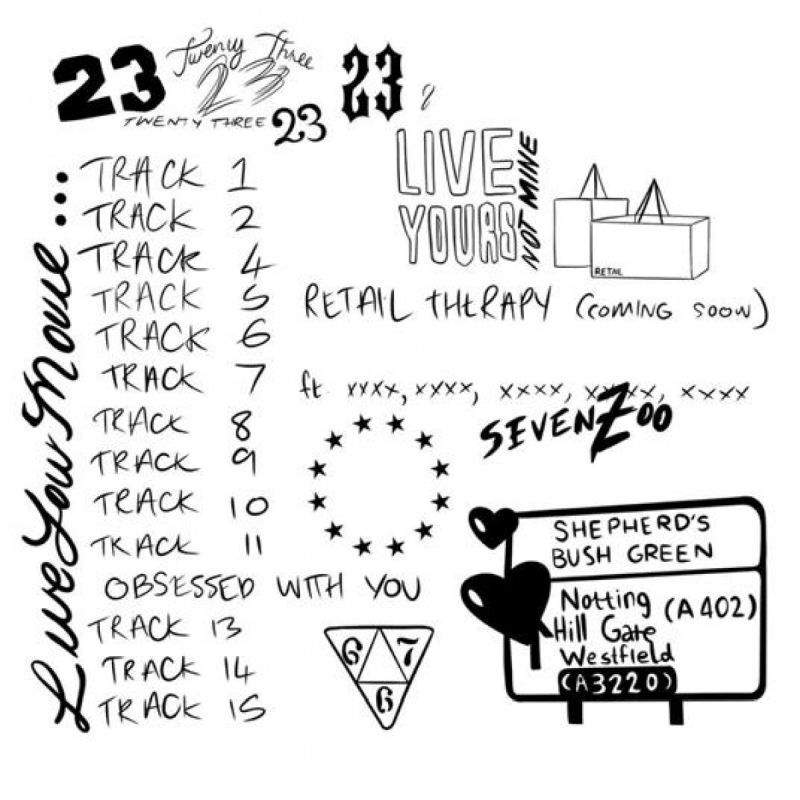 23
Twenty Three
23
TWENTY THREE
23
23
LIVE
YOURS
NOT MINE
Live Your Movie...
TRACK 1
TRACK 2
TRACK 4
TRACK 5
TRACK 6
TRACK 7
TRACK 8
TRACK 9
TRACK 10
TRACK 11
OBSESSED WITH YOU
TRACK 13
TRACK 14
TRACK 15
RETAIL
RETAIL THERAPY (COMING SOON)
ft. xxxx, xxxx, xxxx, xxxx, xxxx
SEVENZOO
6 7
6
SHEPHERD'S
BUSH GREEN
Notting (A402)
Hill Gate
Westfield
(A3220)